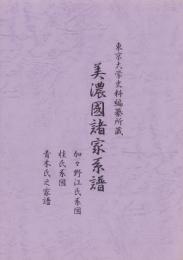 東京大学史料編纂所蔵
美濃國諸家系譜
加々野江氏系図
桂氏系図
青木氏之家譜